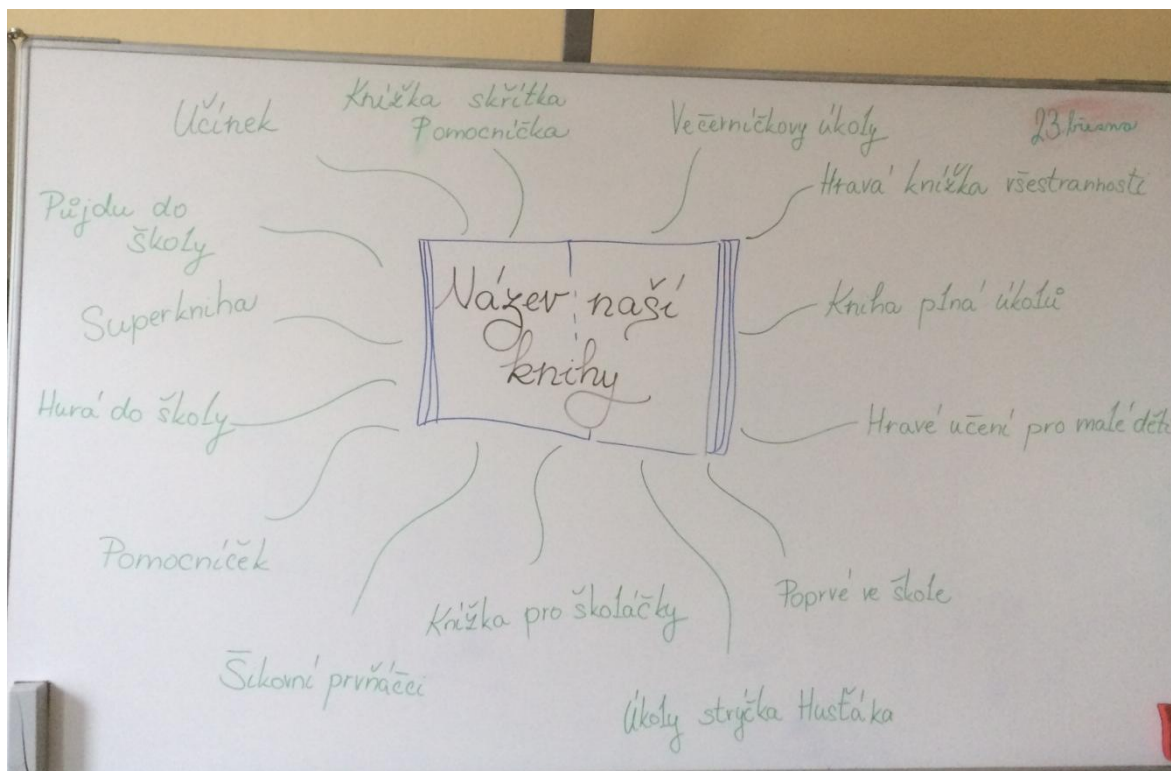 Učínek
Knížka skřítka
Pomocníčka
Večerníčkovy úkoly
23. března
Hravá knížka všestrannosti
Půjdu do
školy
Superkniha
Název naší
knihy
Kniha plná úkolů
Hurá do školy
Hravé učení pro malé děti
Pomocníček
Poprvé ve škole
Knížka pro školáčky
Šikovní prvňáčci
Úkoly strýčka Husťáka